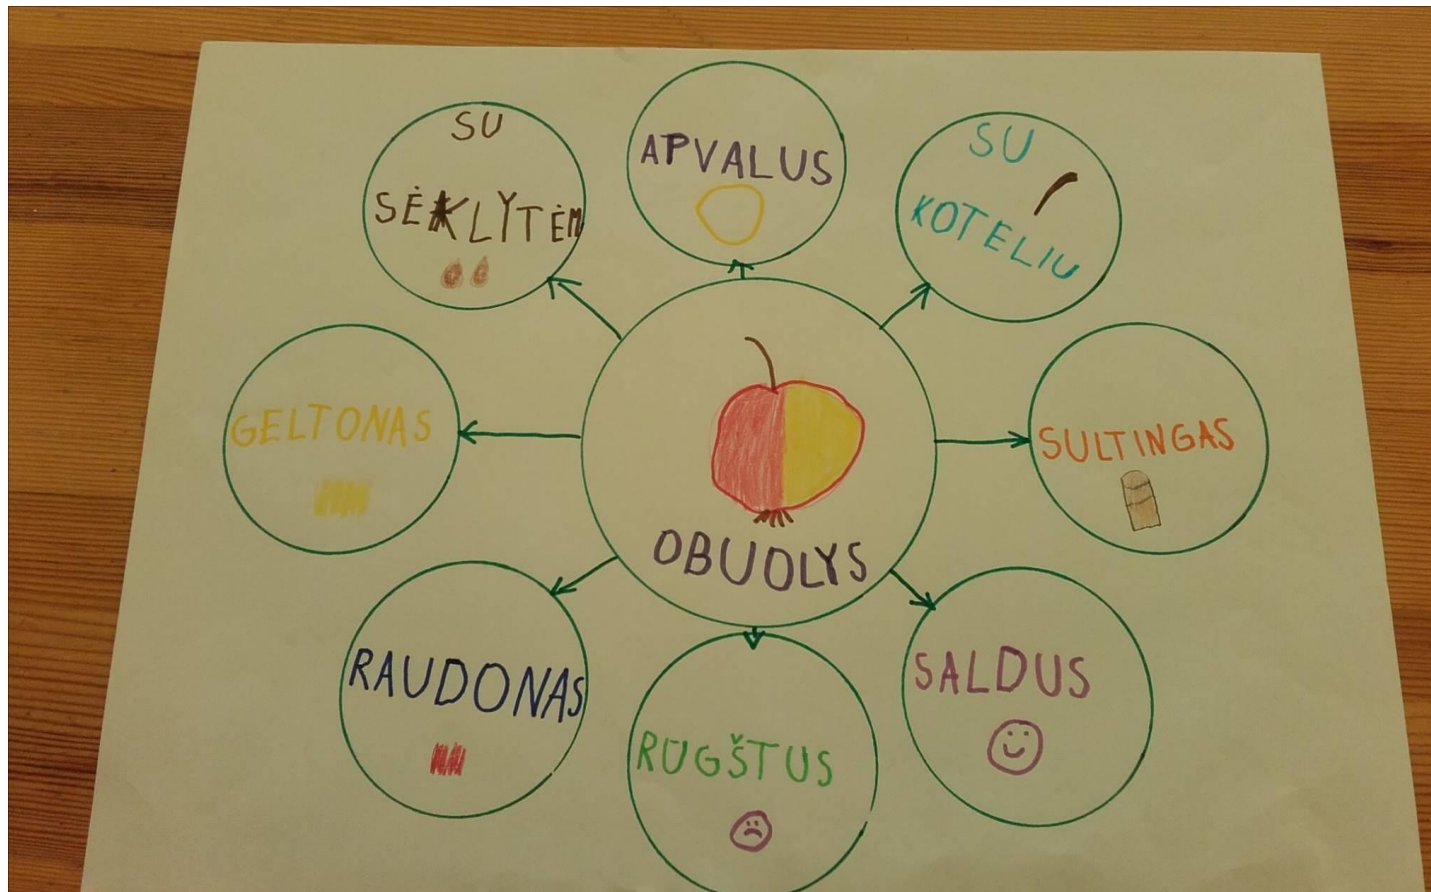 SU
SĖKLYTĖM
APVALUS
SU
KOTELIU
GELTONAS
OBUOLYS
SULTINGAS
RAUDONAS
RŪGŠTUS
SALDUS